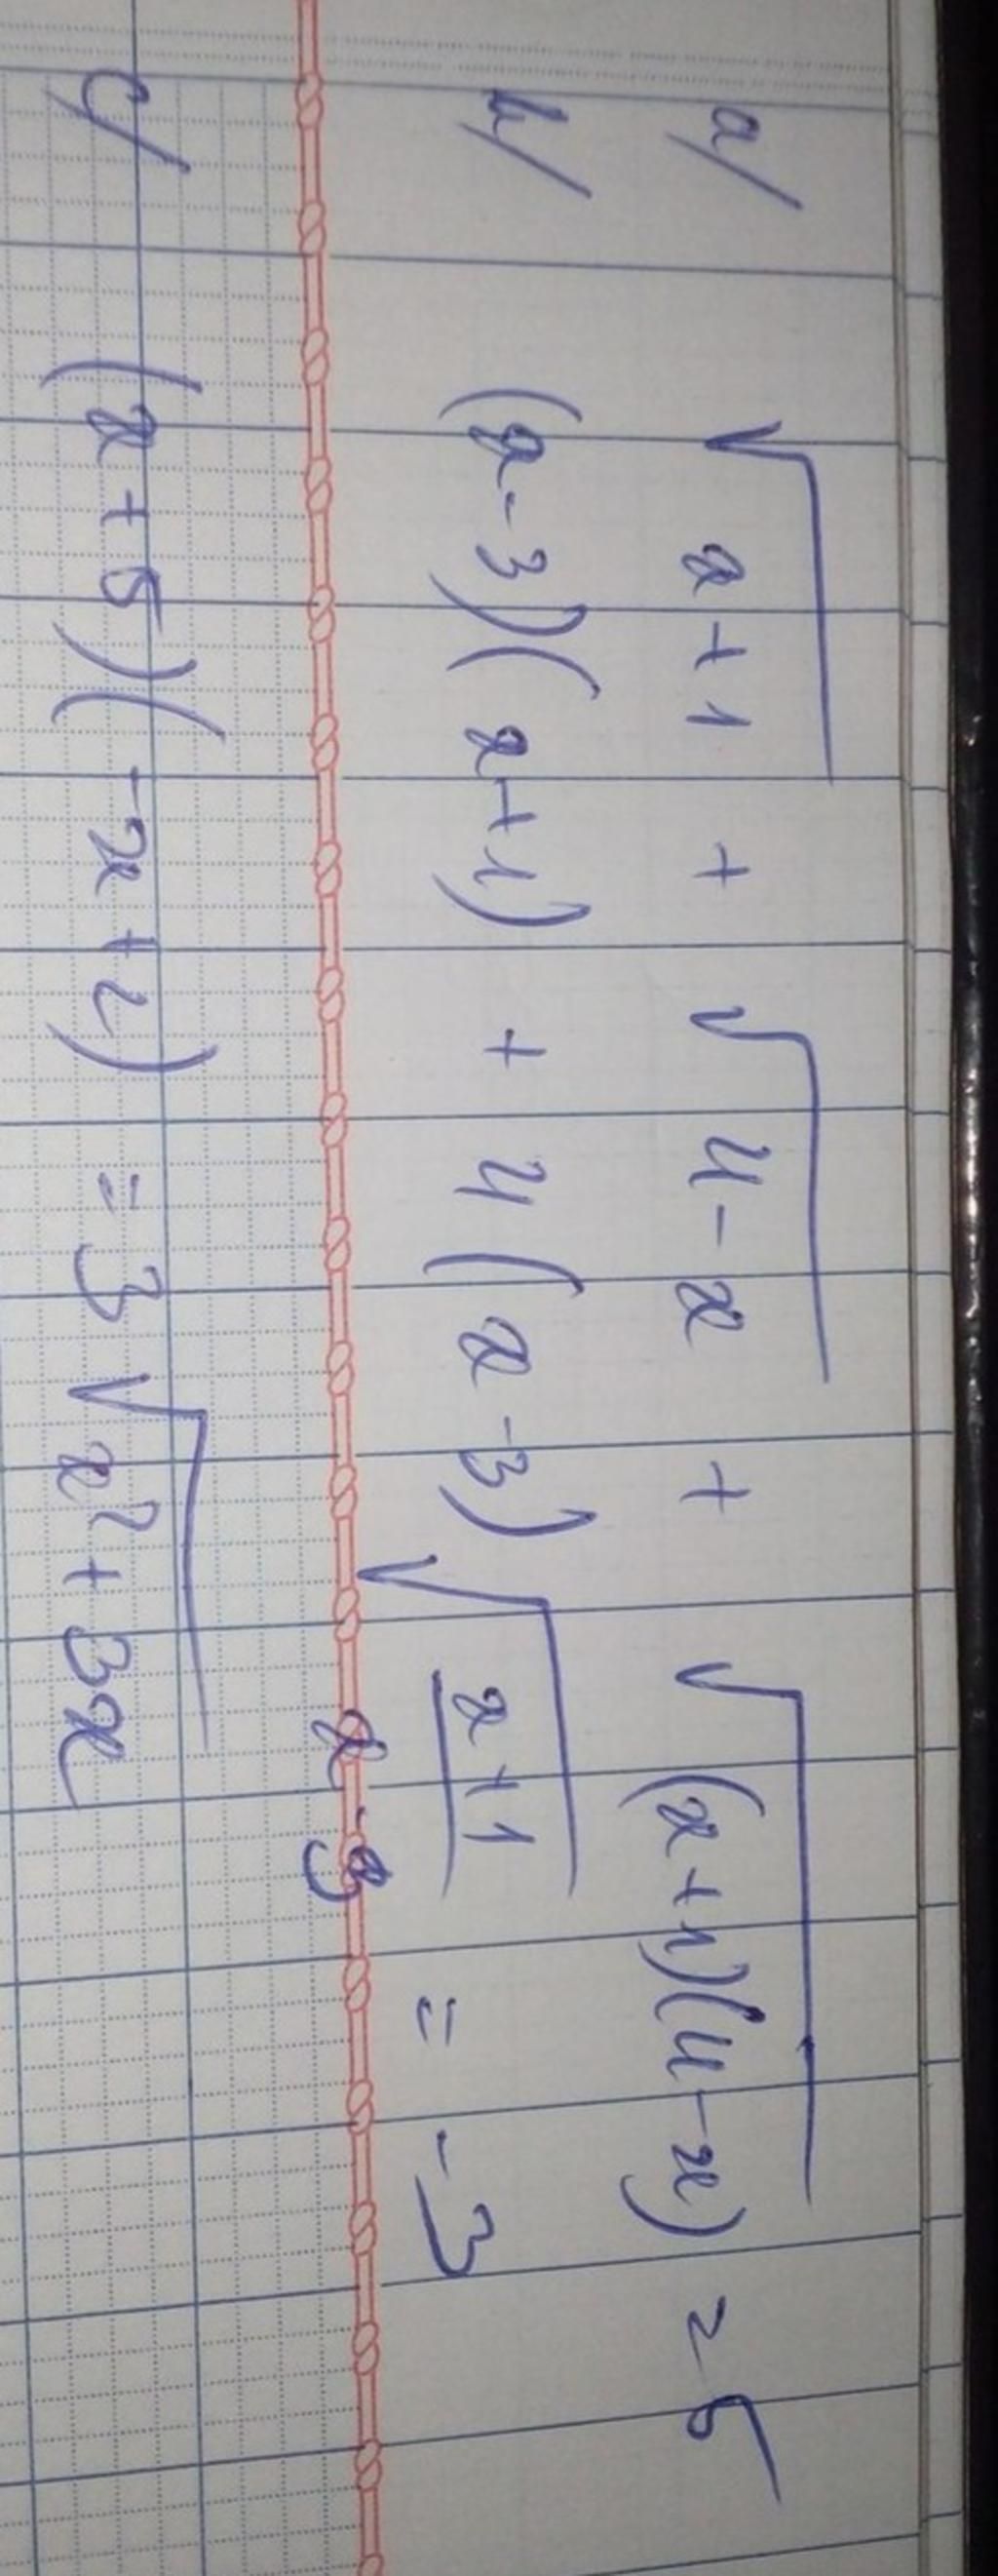 a/ √(x+1) + √(4-x) + √((x+1)(4-x)) = 5
b/ (x-3)(x+1) + 4(x-3)√((x+1)/(x-3)) = -3
c/ (x+5)(-x+2) = 3√(x²+3x)